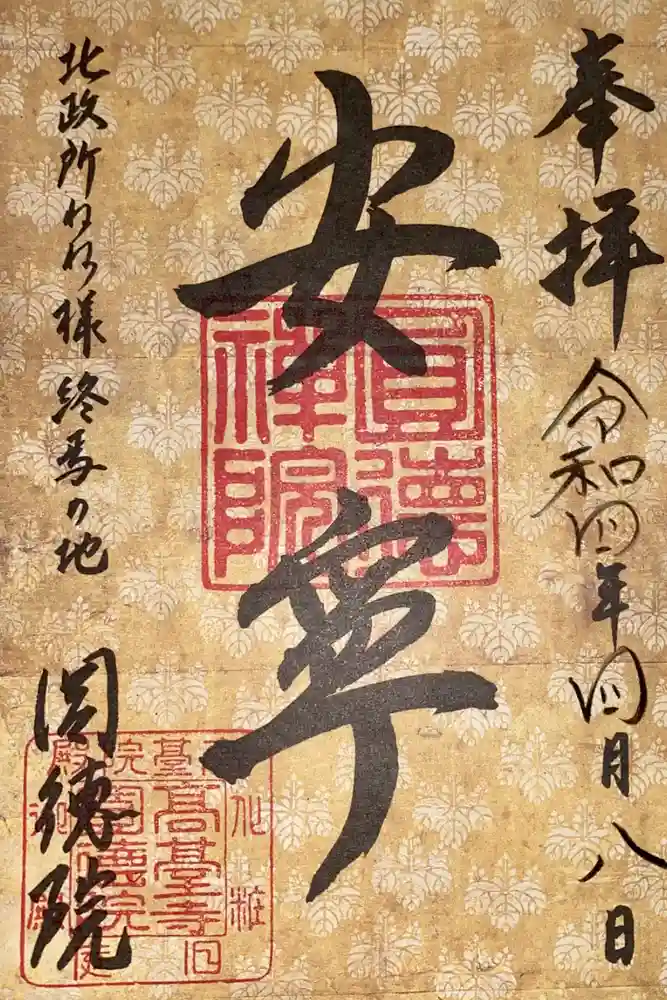 奉拝
令和四年四月八日
安寧
圓德禅院
北政所ねね様終焉の地
圓徳院